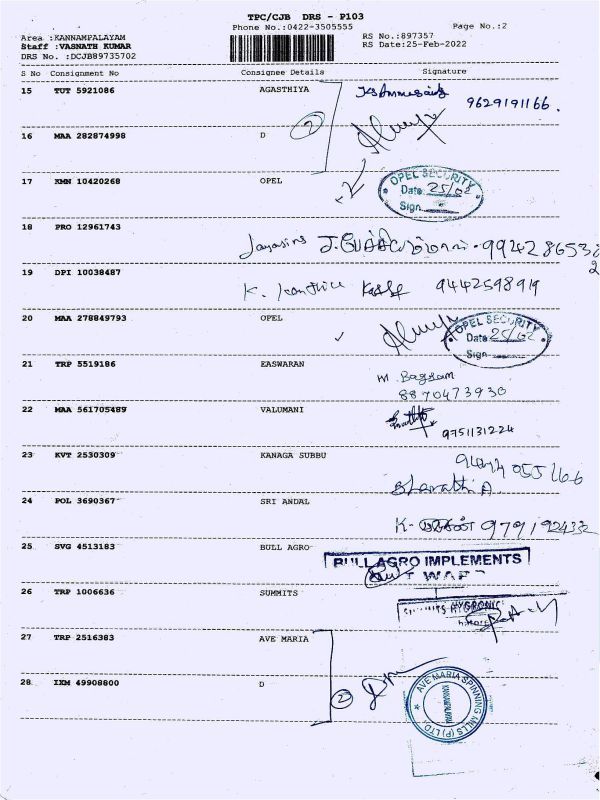 TPC/CJB DRS - P103
Phone No.:0422-3505555 Page No.:2
Area :KANNAMPALAYAM RS No.:897357
Staff :VASNATH KUMAR RS Date:25-Feb-2022
DRS No. :DCJB89735702
S No Consignment No Consignee Details Signature
15 TUT 5921086 AGASTHIYA
9629191166.
2
16 MAA 282874998 D
17 KMN 10420268 OPEL
OPEL SECURITY
Date 25/02
Sign
18 PRO 12961743
19 DPI 10038487
9442598919
20 MAA 278849793 OPEL
OPEL SECURITY
Date 25/02
Sign
21 TRP 5519186 EASWARAN
8870473930
22 MAA 561705489 VALUMANI
9751131224
23 KVT 2530309 KANAGA SUBBU
Bharathi A
24 POL 3690367 SRI ANDAL
25 SVG 4513183 BULL AGRO
BULL AGRO IMPLEMENTS
26 TRP 1006636 SUMMITS
27 TRP 2516383 AVE MARIA
28 IXM 49908800 D
2
AVE MARIA SPINNING MILLS (P) LTD.